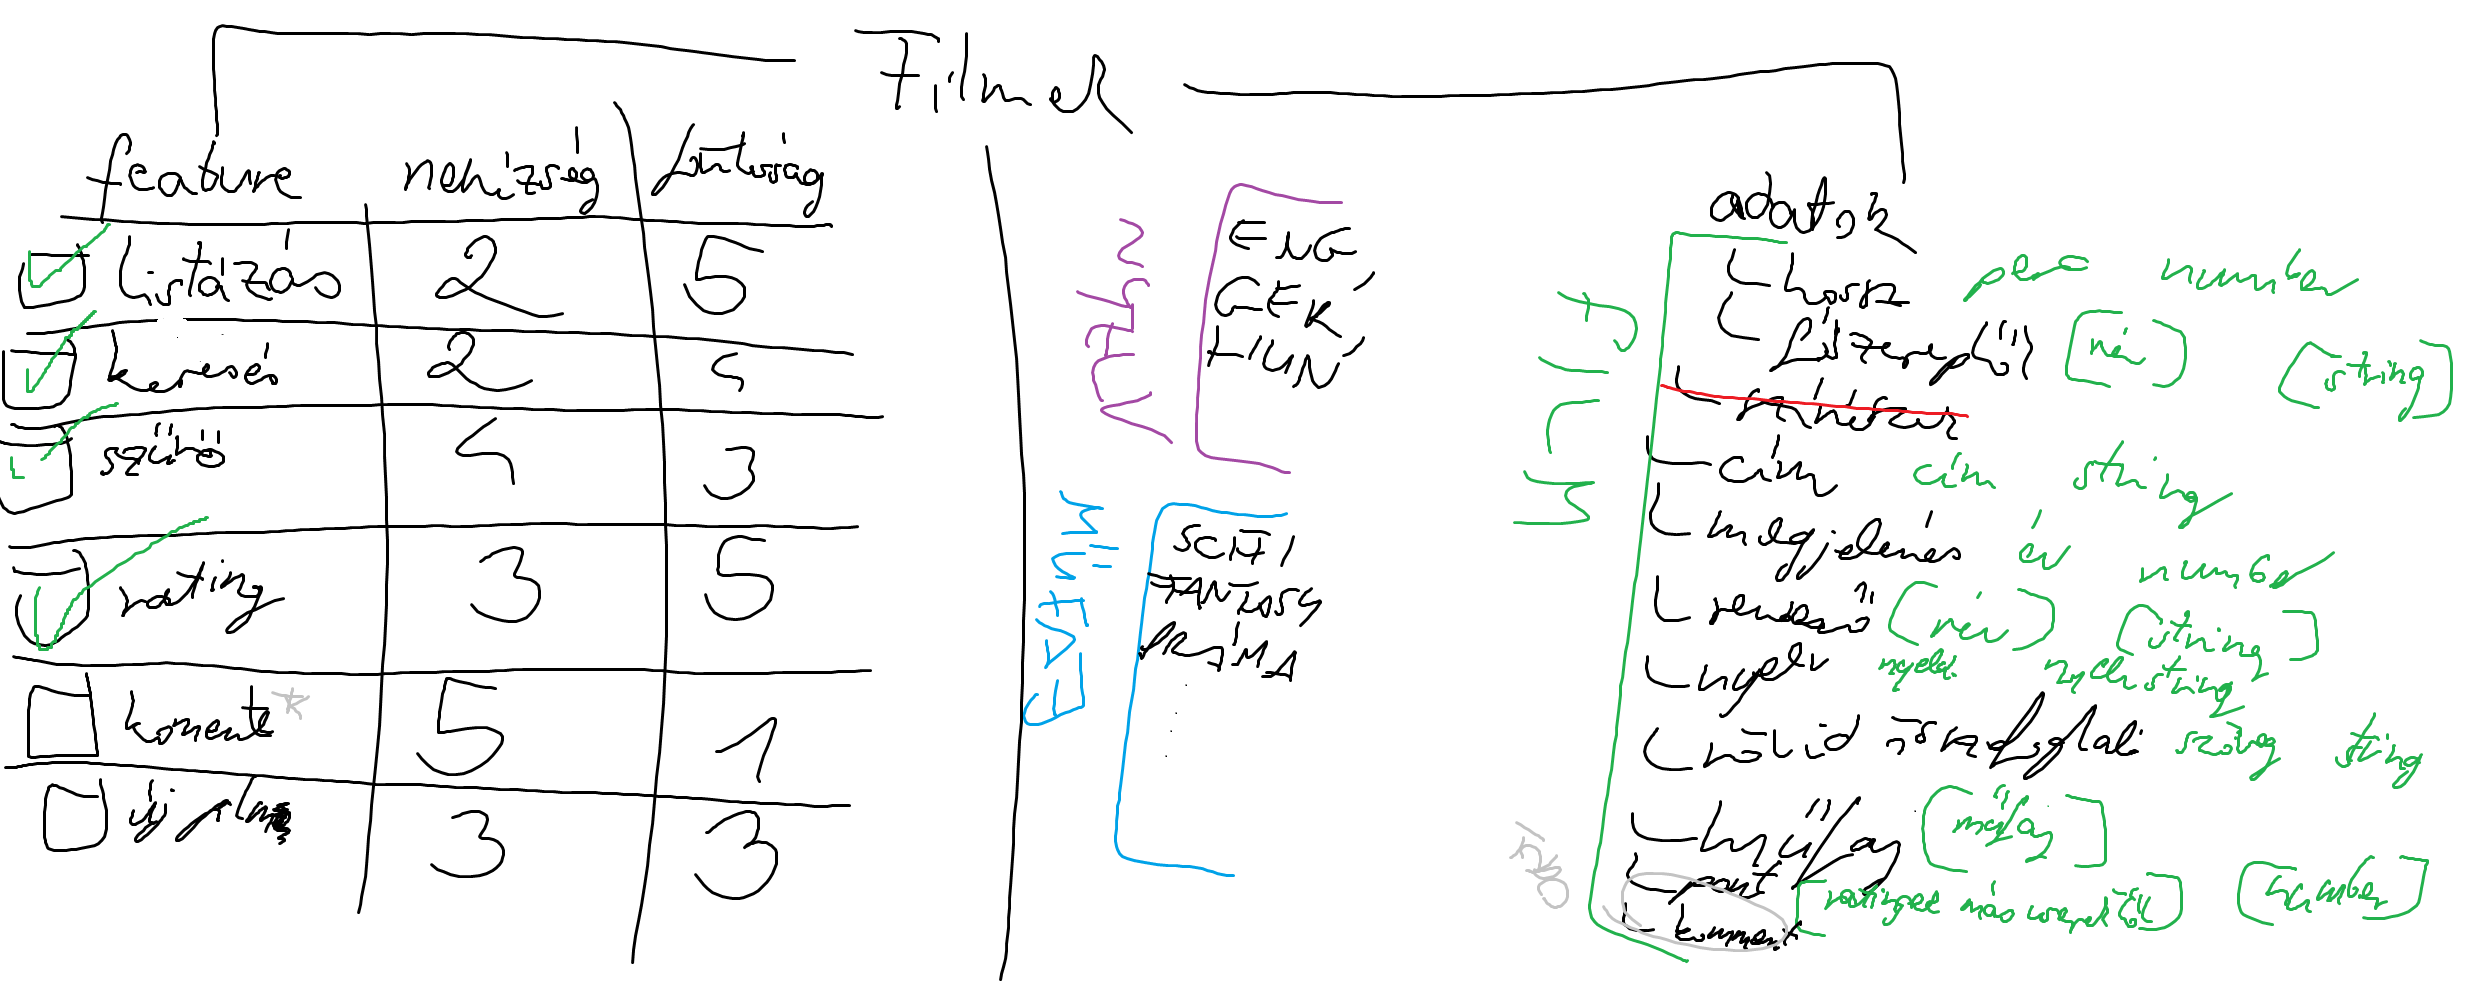 Filmek
feature nehézség fontosság
listázás 2 5
keresés 2 5
szűrő 4 3
rating 3 5
koment * 5 1
új film 3 3
NYELV
ENG
GER
HUN
MŰFAJ
SCIFI
FANTASY
DRÁMA
FILM
adatok
hossz perc number
főszereplő(k) [név] [string]
cím cím string
megjelenés év number
rendező [név] [string]
nyelv nyelv string
rövid összefoglaló szöveg string
műfaj [műfaj]
pont [ratingek más userektől] [number]
komment